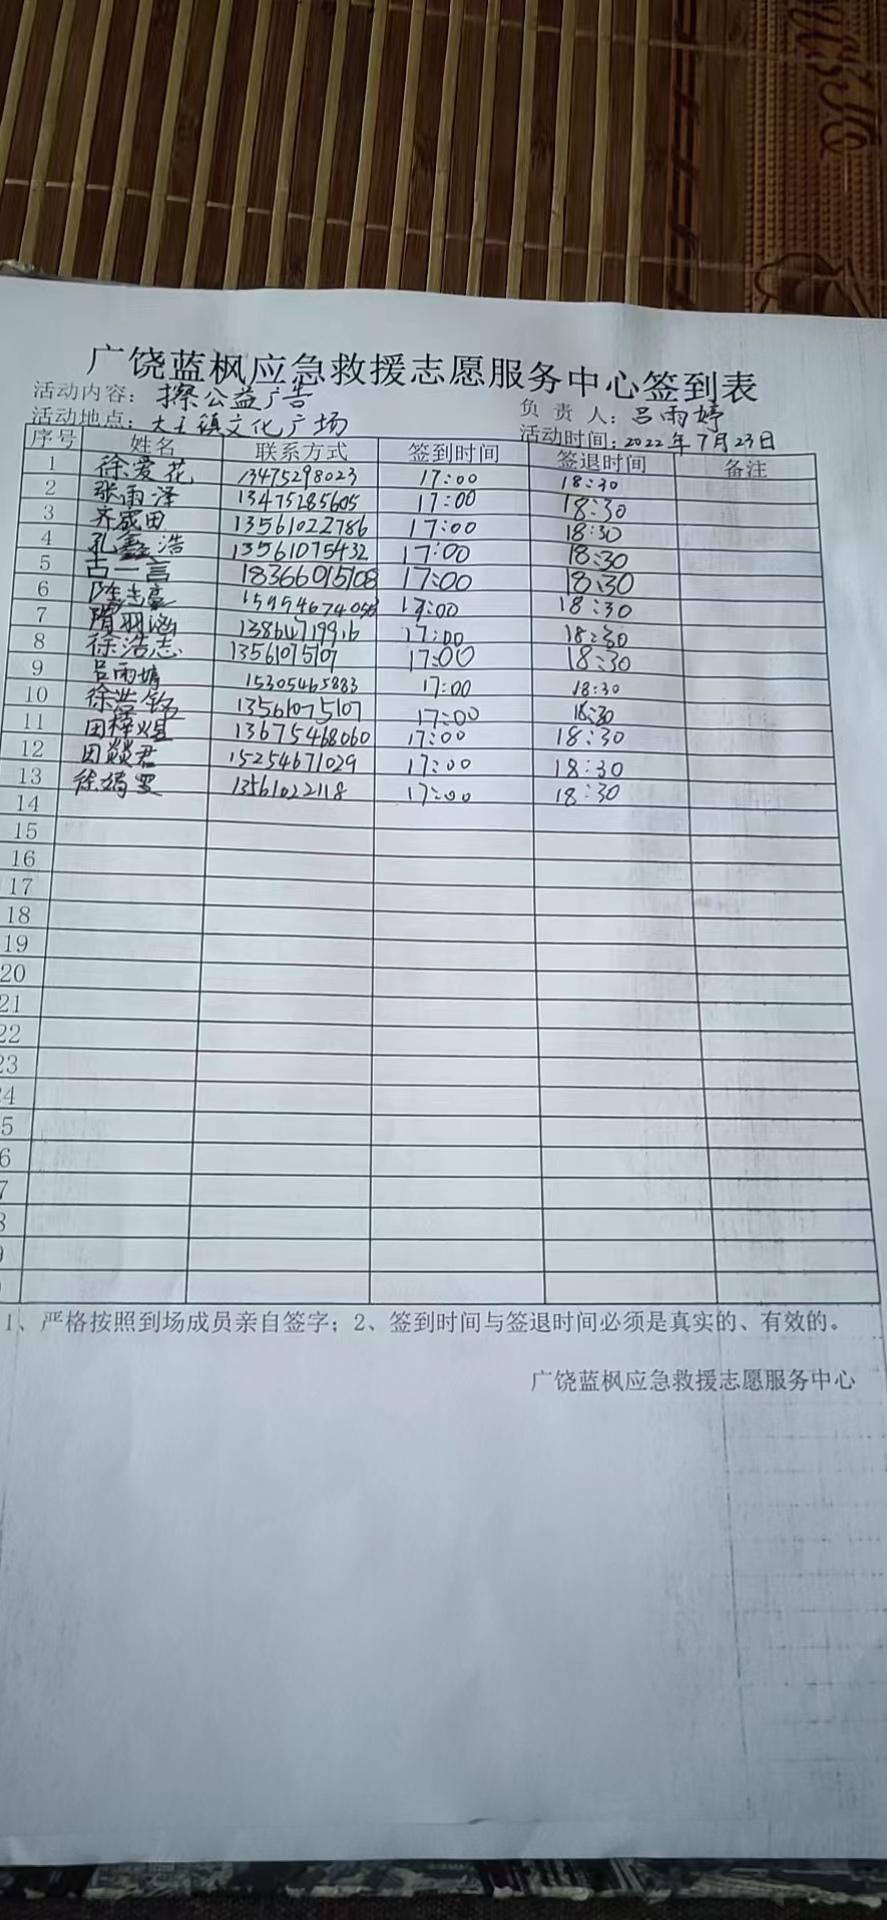 广饶蓝枫应急救援志愿服务中心签到表
活动内容：擦公益广告 负责人：吕雨婷
活动地点：大王镇文化广场 活动时间：2022年7月23日
序号 姓名 联系方式 签到时间 签退时间 备注
1 徐爱花 13475298023 17:00 18:30
2 张雨泽 13475285605 17:00 18:30
3 齐成田 13561022786 17:00 18:30
4 孔鑫浩 13561075432 17:00 18:30
5 古一言 18366015108 17:00 18:30
6 陈志豪 17:00 18:30
7 隋羽 17:00 18:30
8 徐浩志 13561075107 17:00 18:30
9 吕雨婧 15305465883 17:00 18:30
10 徐浩铭 13561075107 17:00 18:30
11 田梓煜 13675468060 17:00 18:30
12 田燚君 15254671029 17:00 18:30
13 徐嫣雯 13561022118 17:00 18:30
14
15
16
17
18
19
20
21
22
23
24
5
6
7
8
9
1、严格按照到场成员亲自签字；2、签到时间与签退时间必须是真实的、有效的。
广饶蓝枫应急救援志愿服务中心